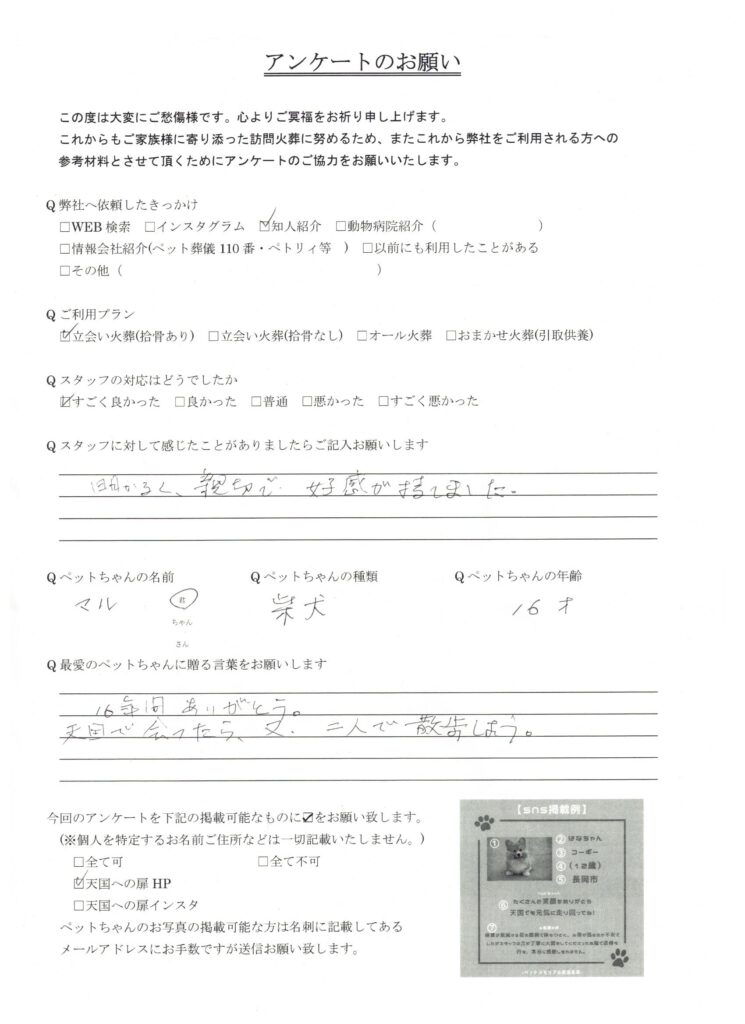 アンケートのお願い
この度は大変にご愁傷様です。心よりご冥福をお祈り申し上げます。
これからもご家族様に寄り添った訪問火葬に努めるため、またこれから弊社をご利用される方への
参考材料とさせて頂くためにアンケートのご協力をお願いいたします。
Q 弊社へ依頼したきっかけ
□WEB 検索 □インスタグラム ☑知人紹介 □動物病院紹介（ ）
□情報会社紹介(ペット葬儀 110 番・ペトリィ等 ) □以前にも利用したことがある
□その他（ ）
Q ご利用プラン
☑立会い火葬(拾骨あり) □立会い火葬(拾骨なし) □オール火葬 □おまかせ火葬(引取供養)
Q スタッフの対応はどうでしたか
☑すごく良かった □良かった □普通 □悪かった □すごく悪かった
Q スタッフに対して感じたことがありましたらご記入お願いします
明かるく、親切で 好感が持てました。
Q ペットちゃんの名前 Q ペットちゃんの種類 Q ペットちゃんの年齢
マル 君 柴犬 16才
ちゃん
さん
Q 最愛のペットちゃんに贈る言葉をお願いします
16年間 ありがとう。
天国で会ったら、又、二人で散歩しよう。
今回のアンケートを下記の掲載可能なものに☑をお願い致します。
(※個人を特定するお名前ご住所などは一切記載いたしません。)
□全て可 □全て不可
☑天国への扉 HP
□天国への扉インスタ
ペットちゃんのお写真の掲載可能な方は名刺に記載してある
メールアドレスにお手数ですが送信お願い致します。
【sns掲載例】
① ②はなちゃん
③コーギー
④（12歳）
⑤長岡市
⑥たくさんの笑顔をありがとう
天国でも元気に走り回ってね！
⑦